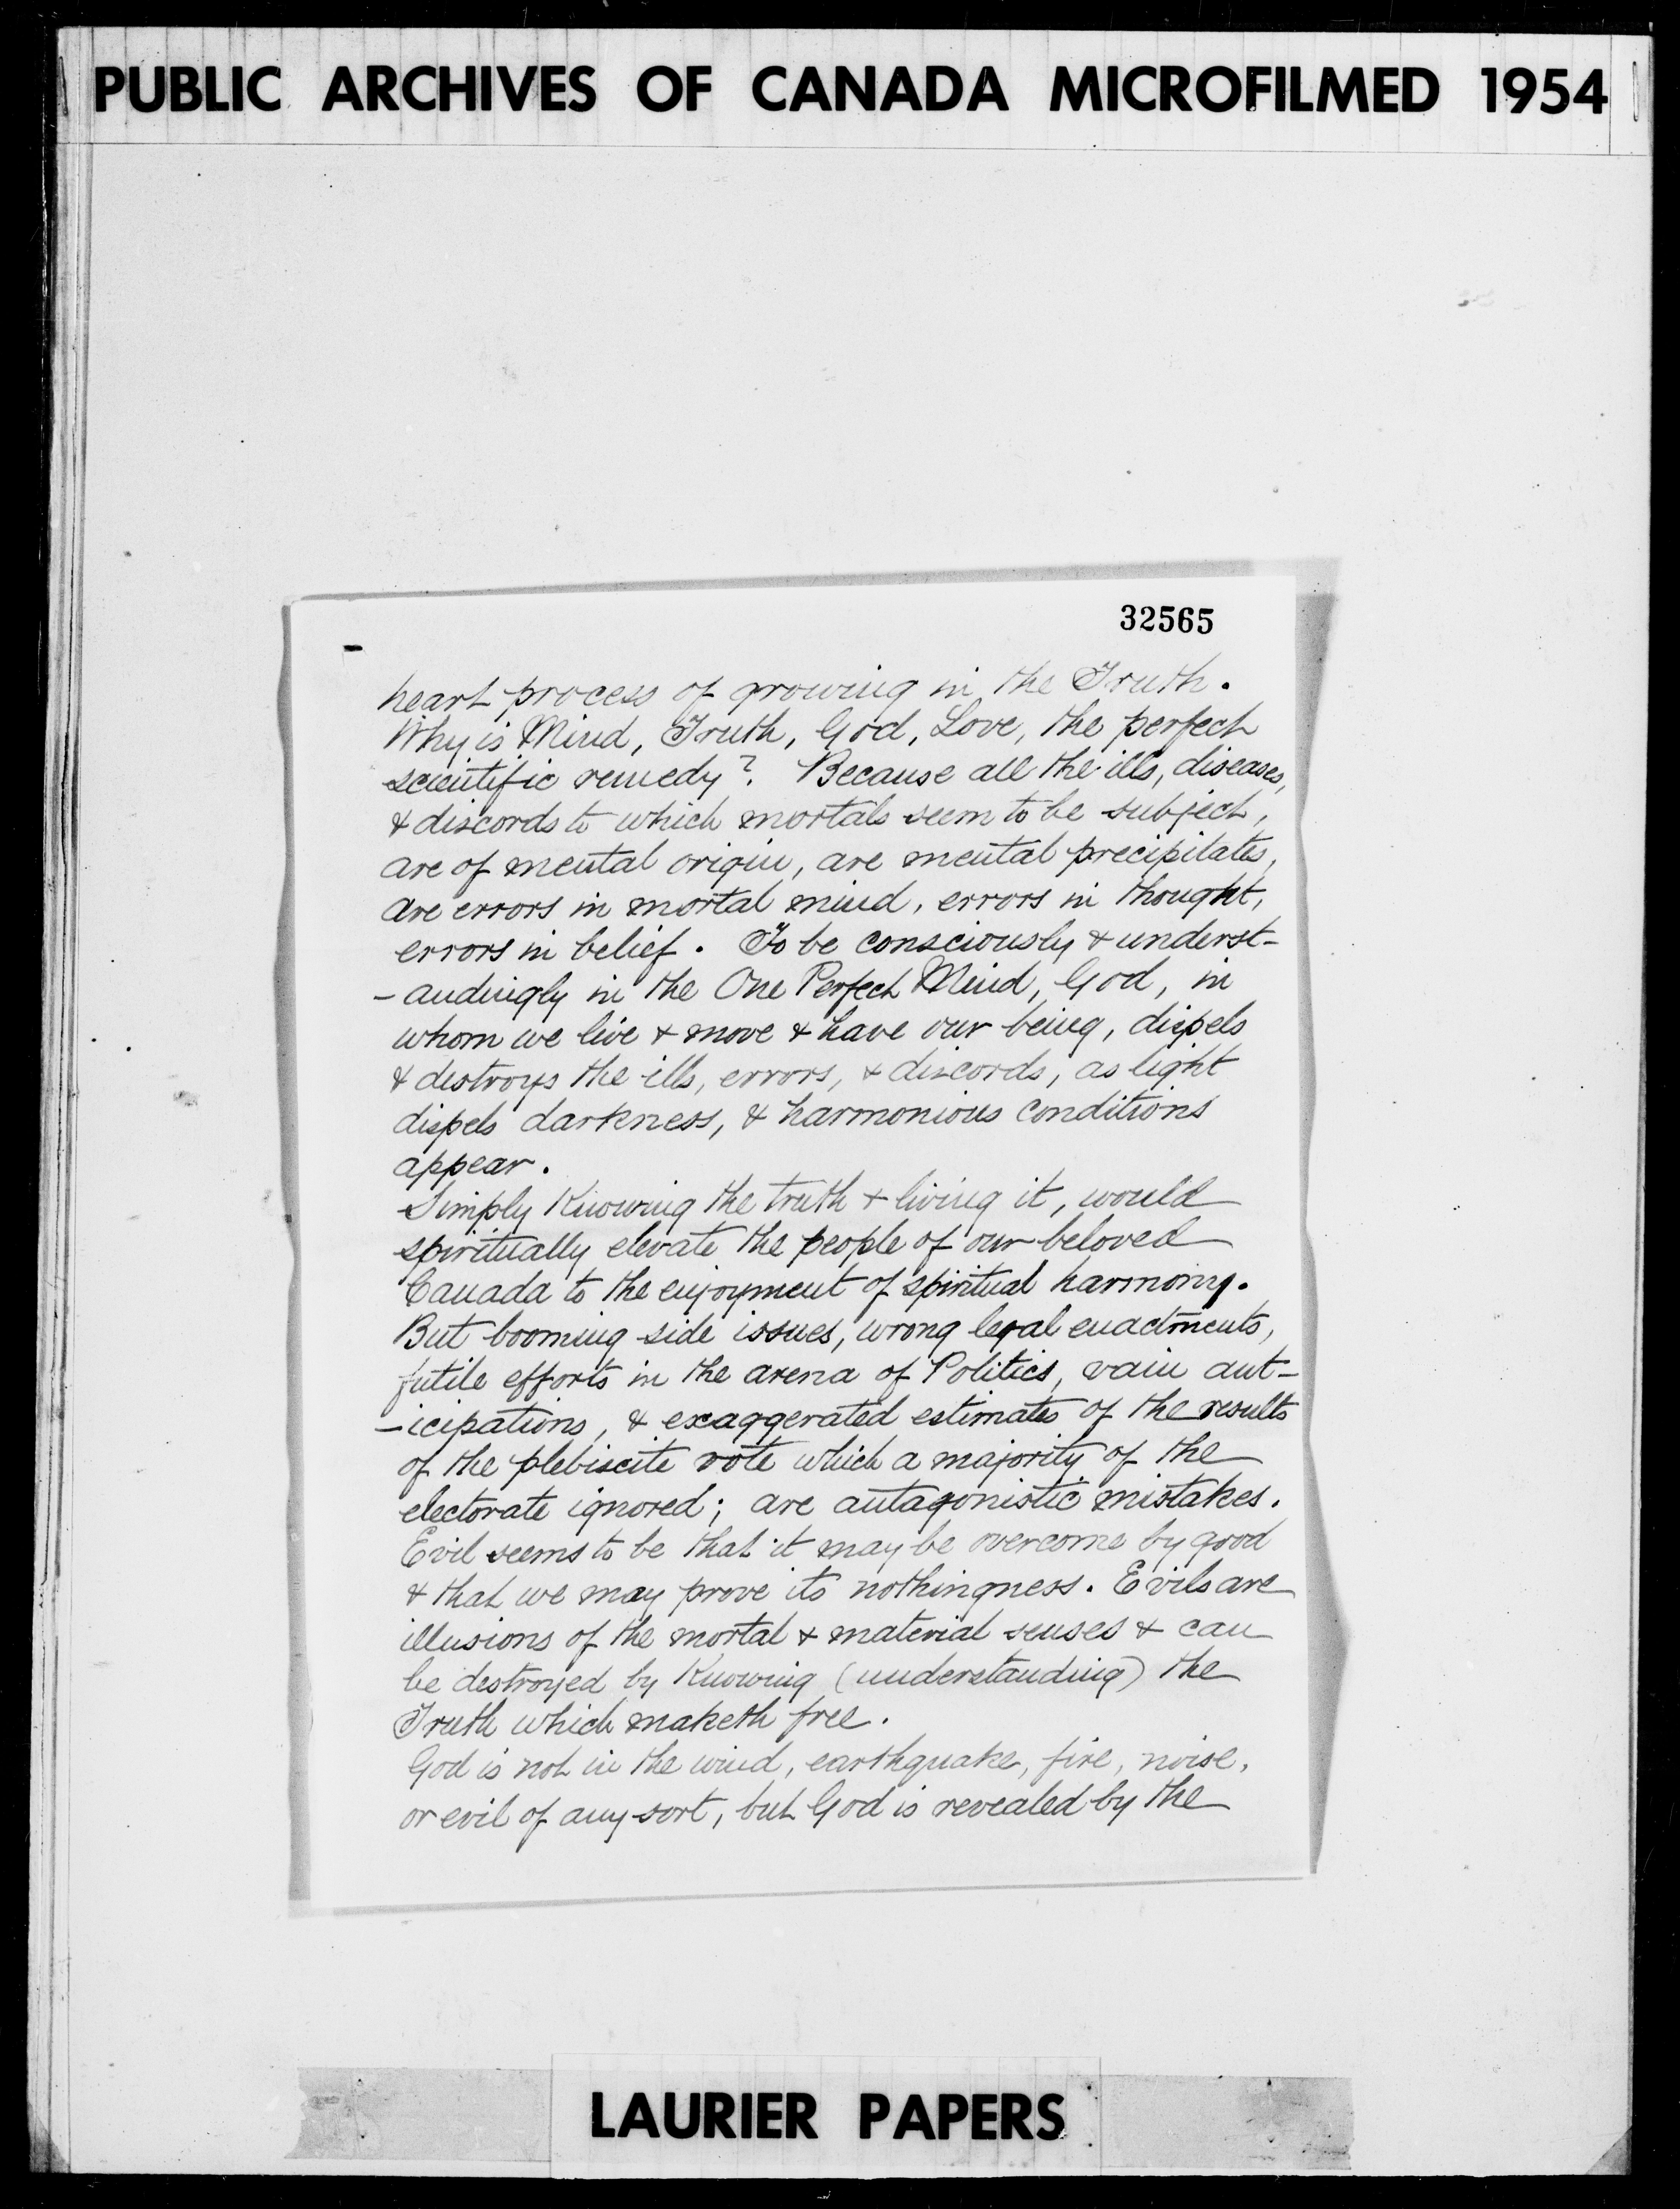 PUBLIC ARCHIVES OF CANADA MICROFILMED 1954
32565
heart process of growing in the Truth.
Why is Mind, Truth, God, Love, the perfect
scientific remedy? Because all the ills, diseases,
& discords to which mortals seem to be subject,
are of mental origin, are mental precipitates,
are errors in mortal mind, errors in thought,
errors in belief. To be consciously & underst-
-andingly in the One Perfect Mind, God, in
whom we live & move & have our being, dispels
& destroys the ills, errors, & discords, as light
dispels darkness, & harmonious conditions
appear.
Simply Knowing the truth & living it, would
spiritually elevate the people of our beloved
Canada to the enjoyment of spiritual harmony.
But booming side issues, wrong legal enactments,
futile efforts in the arena of Politics, vain ant-
-icipations, & exaggerated estimates of the results
of the plebiscite vote which a majority of the
electorate ignored; are antagonistic mistakes.
Evil seems to be that it may be overcome by good
& that we may prove its nothingness. Evils are
illusions of the mortal & material senses & can
be destroyed by Knowing (understanding) the
Truth which maketh free.
God is not in the wind, earthquake, fire, noise,
or evil of any sort, but God is revealed by the
LAURIER PAPERS